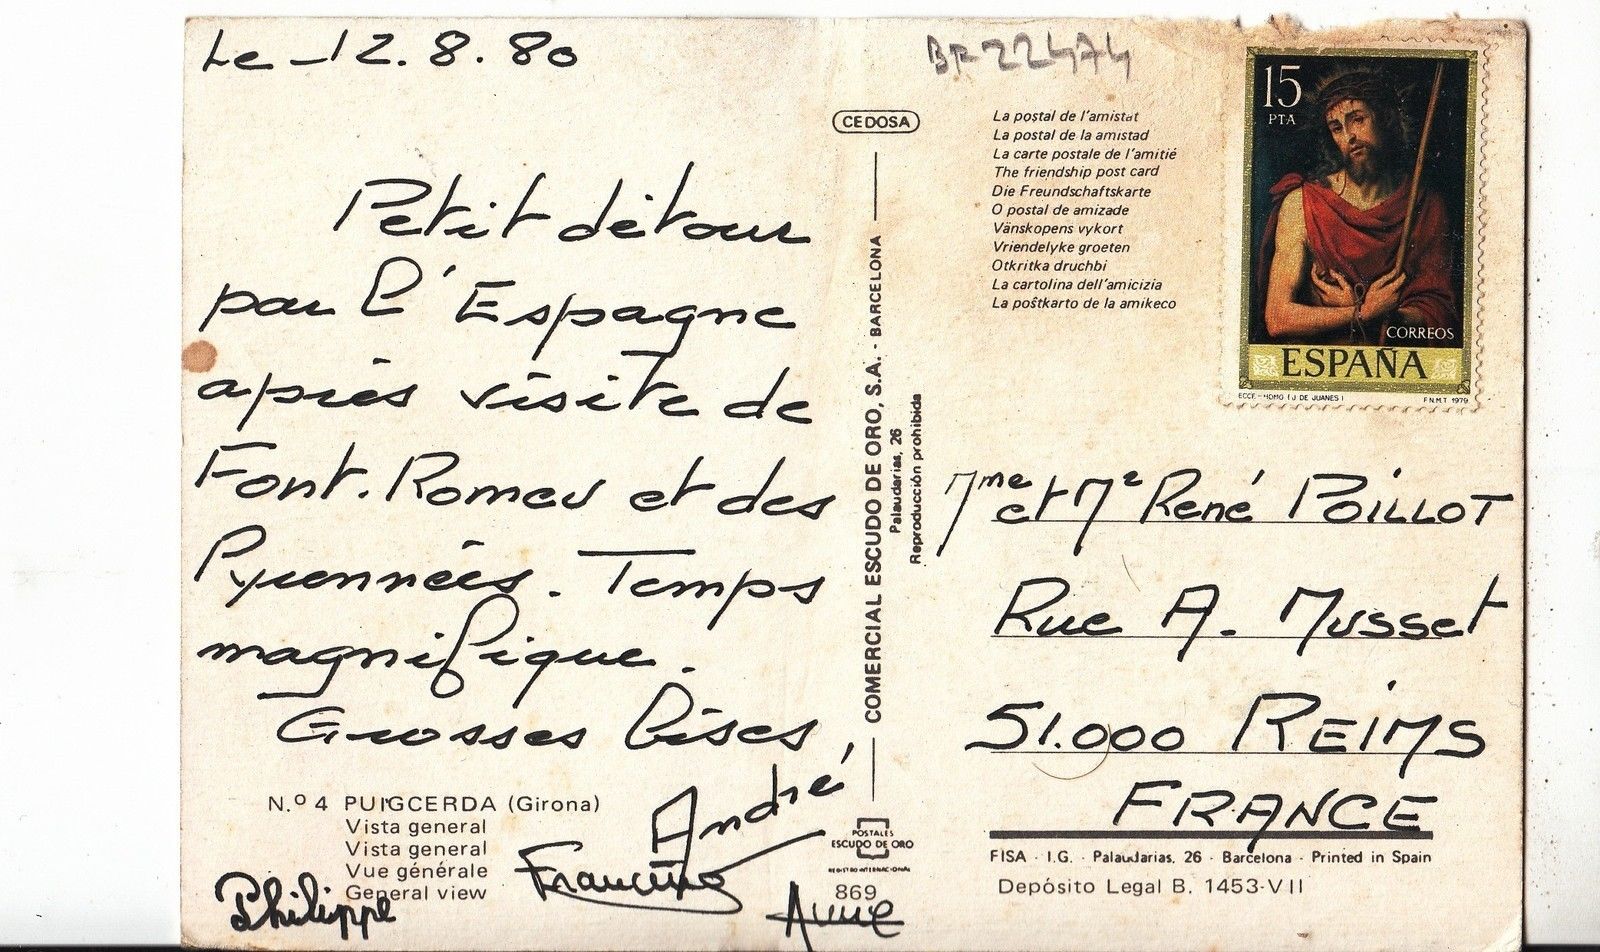 Le -12.8.80
Petit détour
par l'Espagne
après visite de
Font.Romeu et des
Pyrennées. Temps
magnifique.
Grosses bises,
André
Francine
Philippe
Anne
N.º 4 PUIGCERDA (Girona)
Vista general
Vista general
Vue générale
General view
BR 22474
CEDOSA
COMERCIAL ESCUDO DE ORO, S.A. - BARCELONA
Palaudarias, 26
Reproducción prohibida
POSTALES
ESCUDO DE ORO
REGISTRO INTERNACIONAL
869
La postal de l'amistat
La postal de la amistad
La carte postale de l'amitié
The friendship post card
Die Freundschaftskarte
O postal de amizade
Vänskopens vykort
Vriendelyke groeten
Otkritka druchbi
La cartolina dell'amicizia
La poŝtkarto de la amikeco
15
PTA
CORREOS
ESPAÑA
ECCE-HOMO (J DE JUANES)
F.N.M.T. 1979
Mme et Mr René POILLOT
Rue A. Musset
51.000 REIMS
FRANCE
FISA - I.G. - Palaudarias, 26 - Barcelona - Printed in Spain
Depósito Legal B. 1453-VII